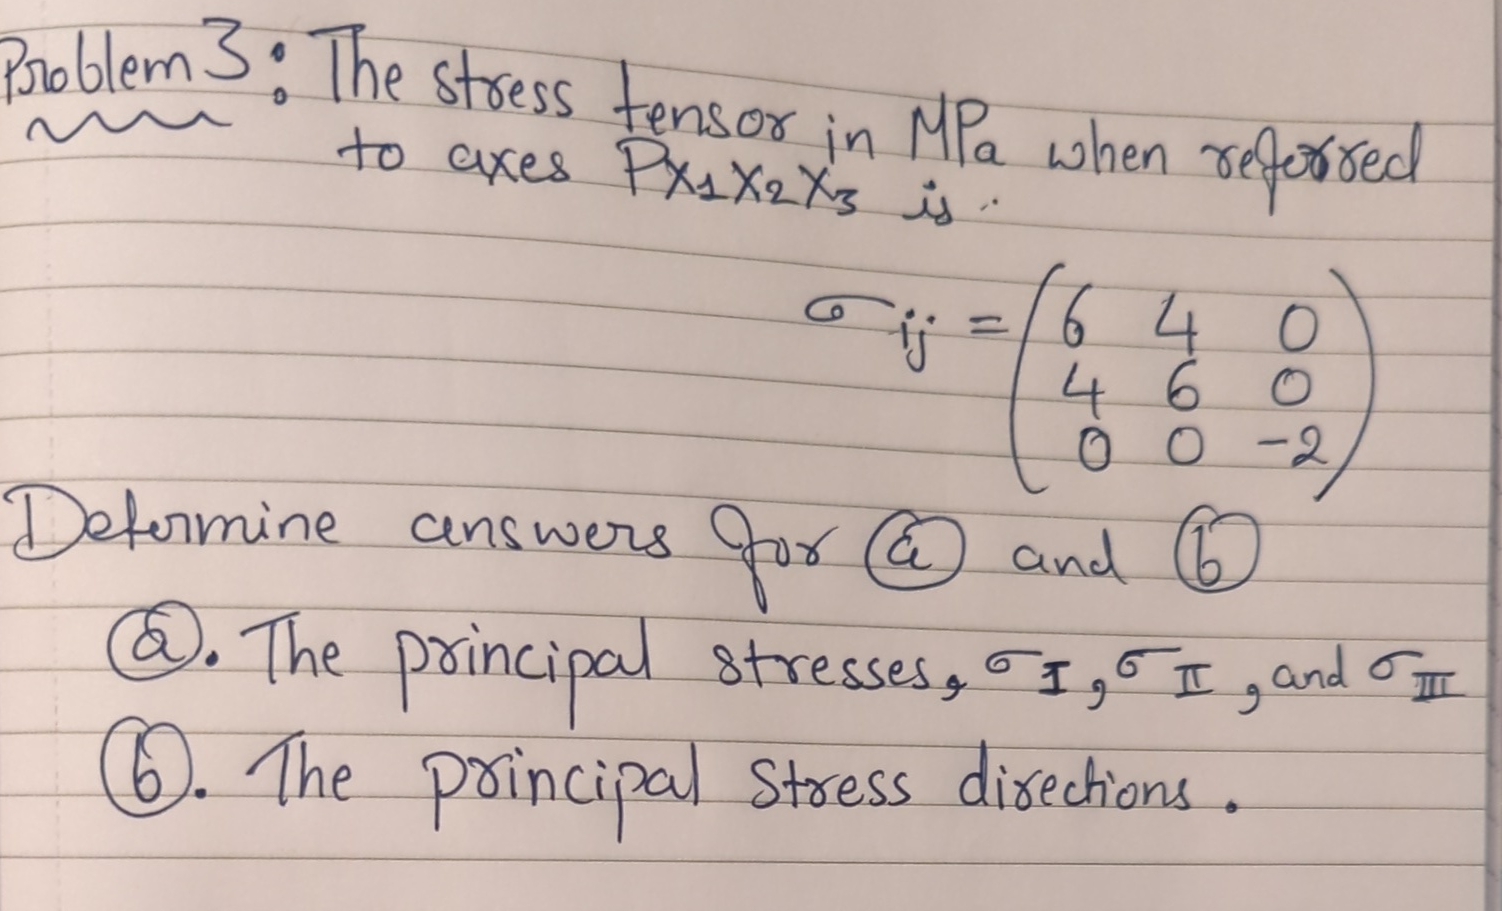 Problem 3: The stress tensor in MPa when referred
to axes Px₁x₂x₃ is
σij = (6 4 0
4 6 0
0 0 -2)
Determine answers for ⓐ and ⓑ
ⓐ. The principal stresses, σI, σII, and σIII
ⓑ. The principal stress directions.